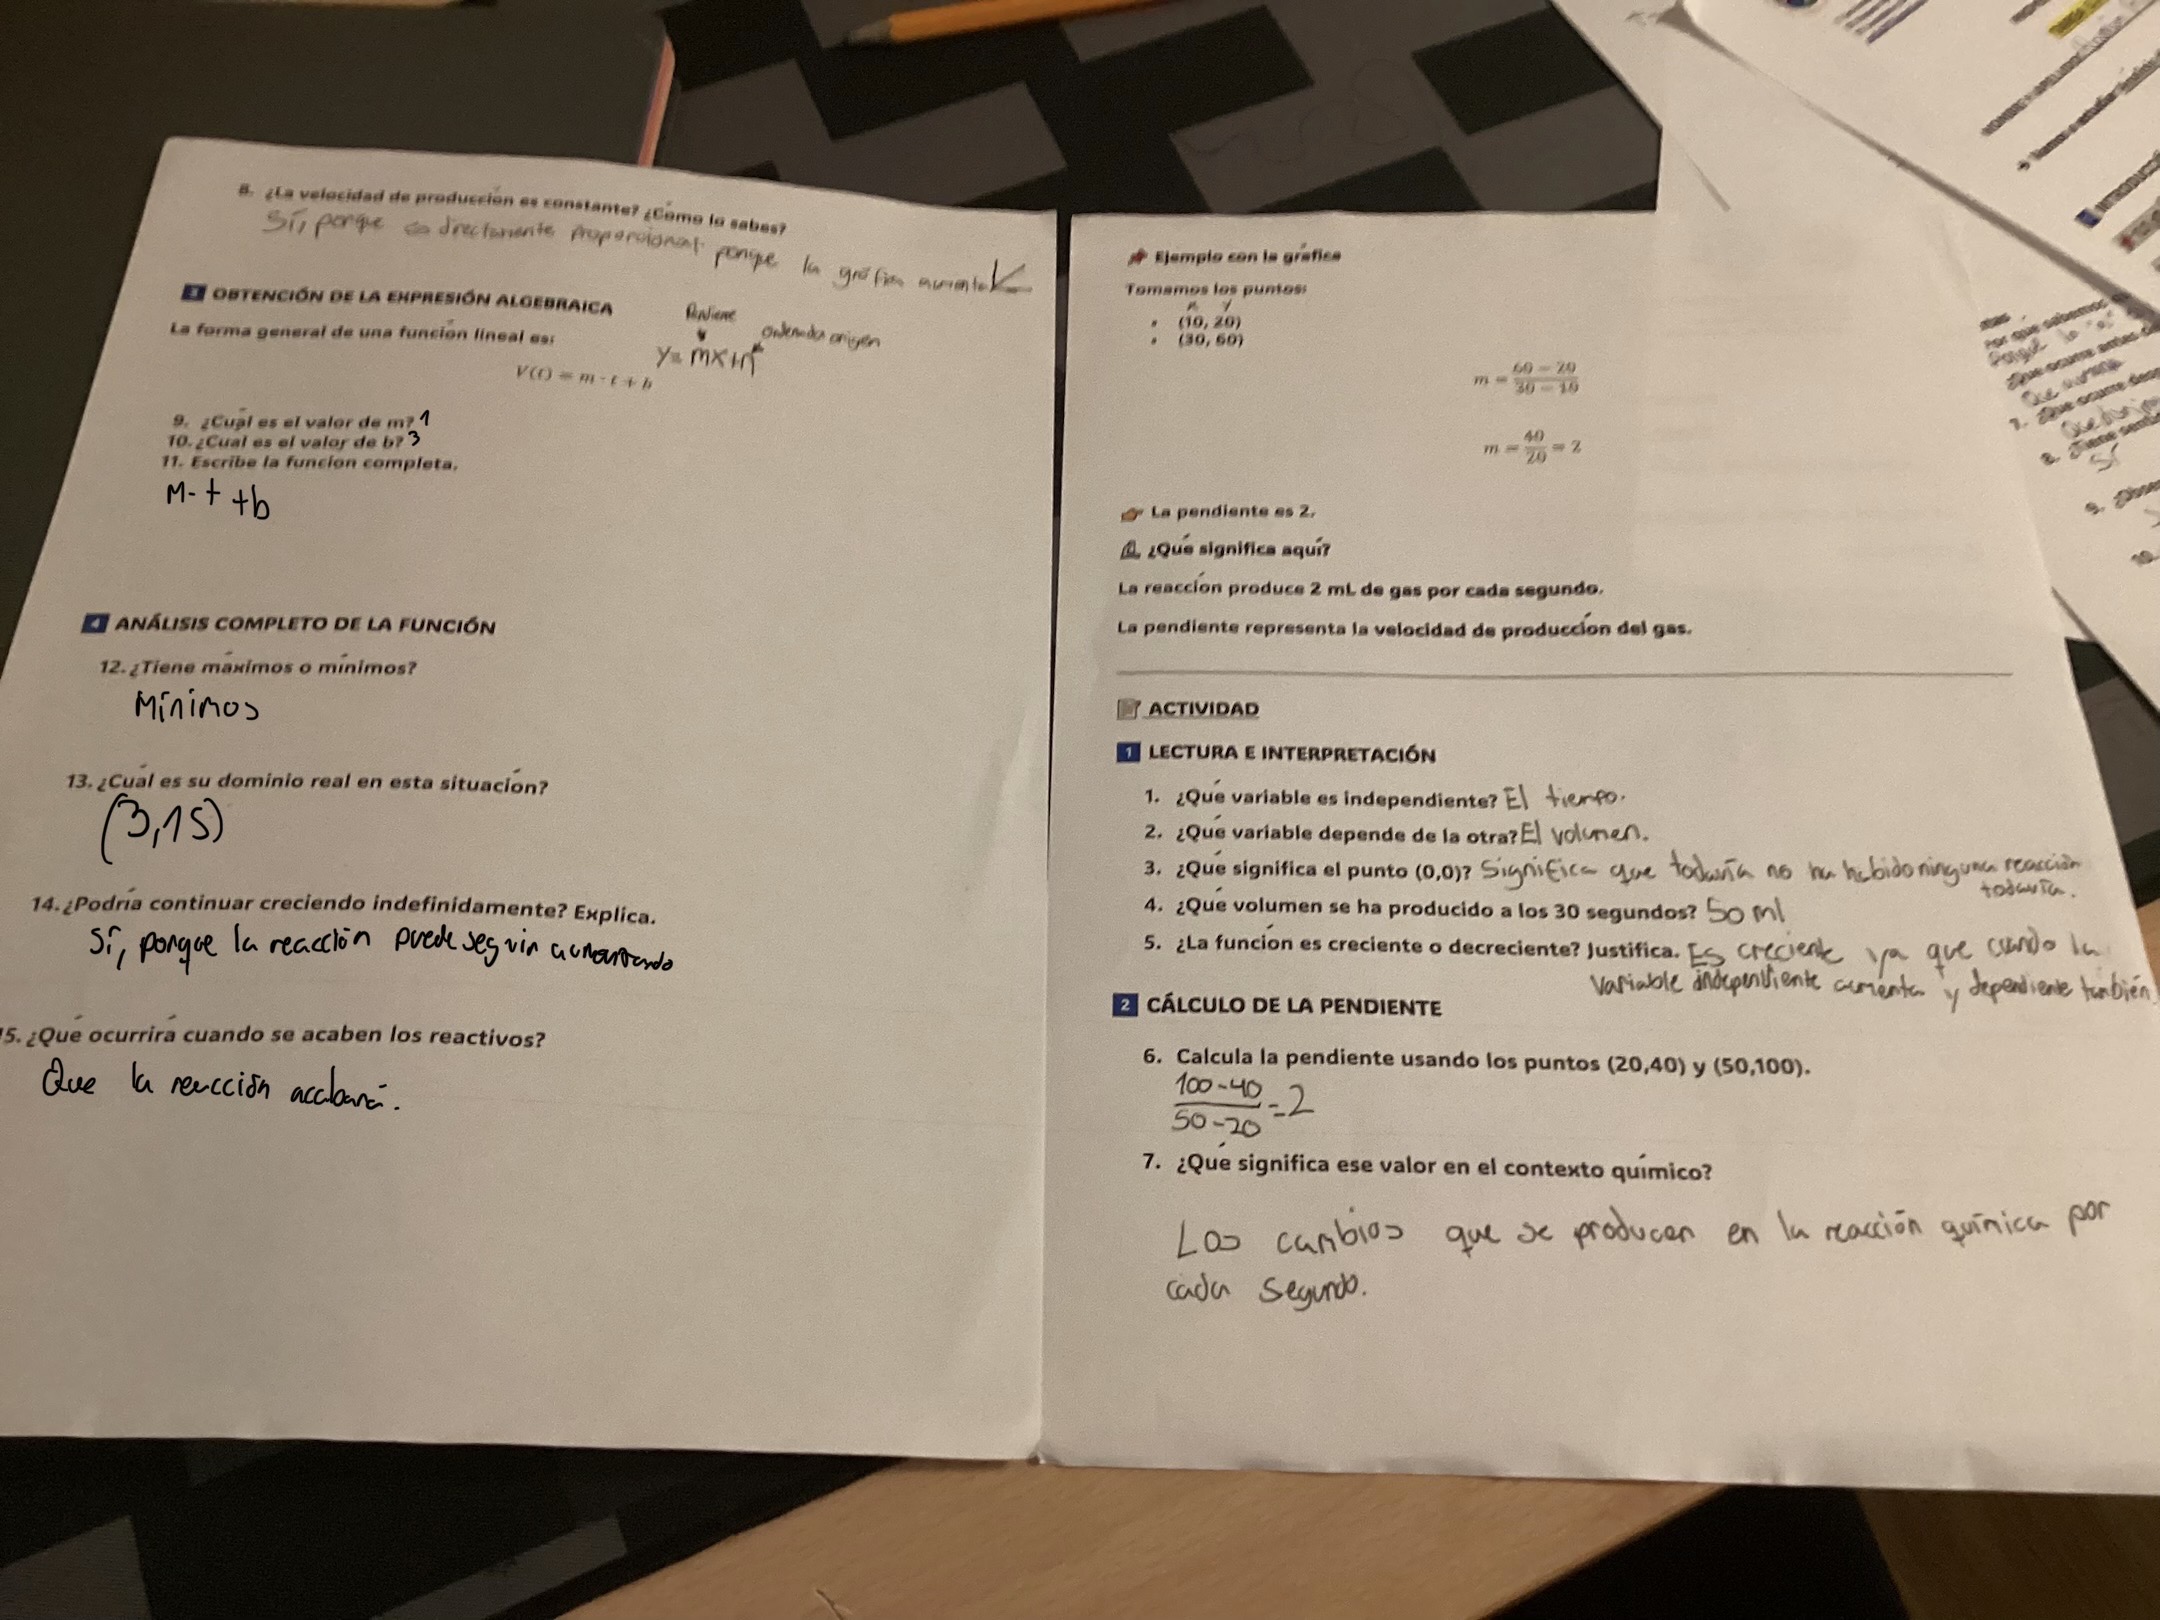 8. ¿La velocidad de producción es constante? ¿Cómo lo sabes?
Sí, porque es directamente proporcional porque la gráfica aumenta
3 OBTENCIÓN DE LA EXPRESIÓN ALGEBRAICA
La forma general de una función lineal es:
Pendiente
ordenada origen
y = mx+n
V(t) = m · t + b
9. ¿Cuál es el valor de m? 1
10. ¿Cual es el valor de b? 3
11. Escribe la función completa.
M · t + b
4 ANÁLISIS COMPLETO DE LA FUNCIÓN
12. ¿Tiene máximos o mínimos?
Mínimos
13. ¿Cuál es su dominio real en esta situación?
(3,15)
14. ¿Podría continuar creciendo indefinidamente? Explica.
Sí, porque la reacción puede seguir aumentando
15. ¿Qué ocurrirá cuando se acaben los reactivos?
Que la reacción acabará.
Ejemplo con la gráfica
Tomamos los puntos:
x y
• (10, 20)
• (30, 60)
m = 60 − 20 / 30 − 10
m = 40 / 20 = 2
La pendiente es 2.
¿Qué significa aquí?
La reacción produce 2 mL de gas por cada segundo.
La pendiente representa la velocidad de producción del gas.
ACTIVIDAD
1 LECTURA E INTERPRETACIÓN
1. ¿Qué variable es independiente? El tiempo.
2. ¿Qué variable depende de la otra? El volumen.
3. ¿Qué significa el punto (0,0)? Significa que todavía no ha habido ninguna reacción
todavía.
4. ¿Qué volumen se ha producido a los 30 segundos? 50 ml
5. ¿La función es creciente o decreciente? Justifica. Es creciente ya que cuando la
variable independiente aumenta y dependiente también
2 CÁLCULO DE LA PENDIENTE
6. Calcula la pendiente usando los puntos (20,40) y (50,100).
100-40 / 50-20 = 2
7. ¿Qué significa ese valor en el contexto químico?
Los cambios que se producen en la reacción química por
cada segundo.